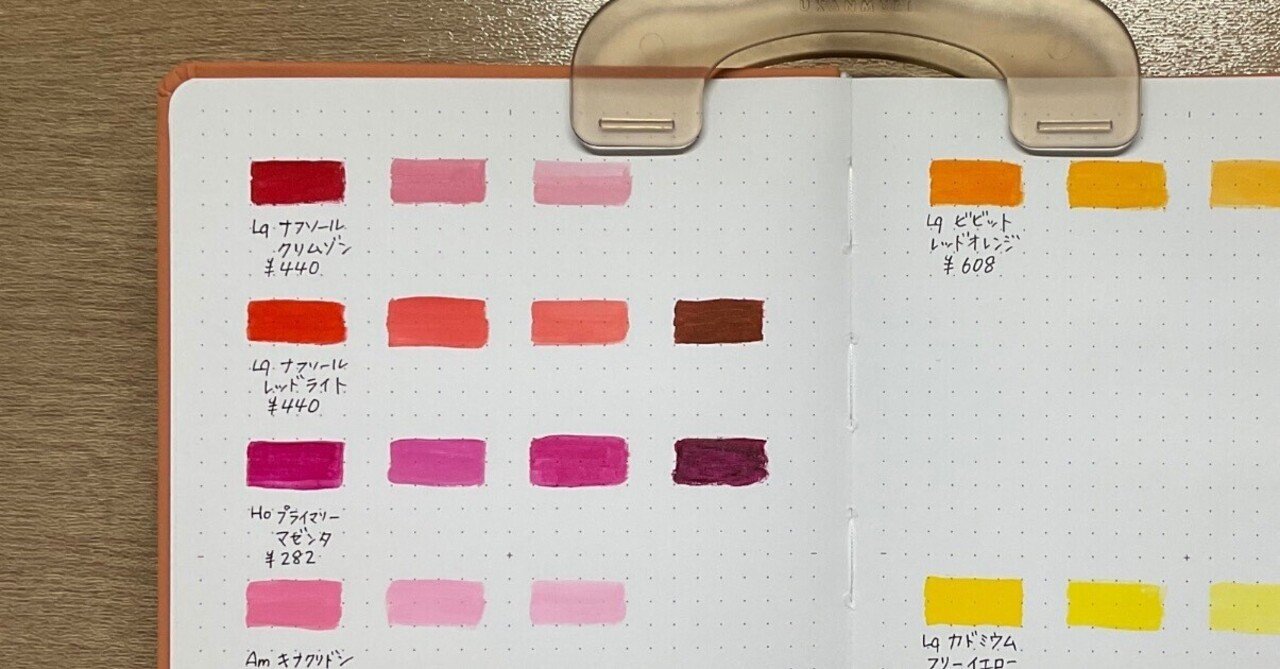 Lq ナフソール
クリムゾン
¥440
Lq ナフソール
レッドライト
¥440
Ho プライマリー
マゼンタ
¥282
Am キナクリドン
Lq ビビット
レッドオレンジ
¥608
Lq カドミウム
フリーイエロー